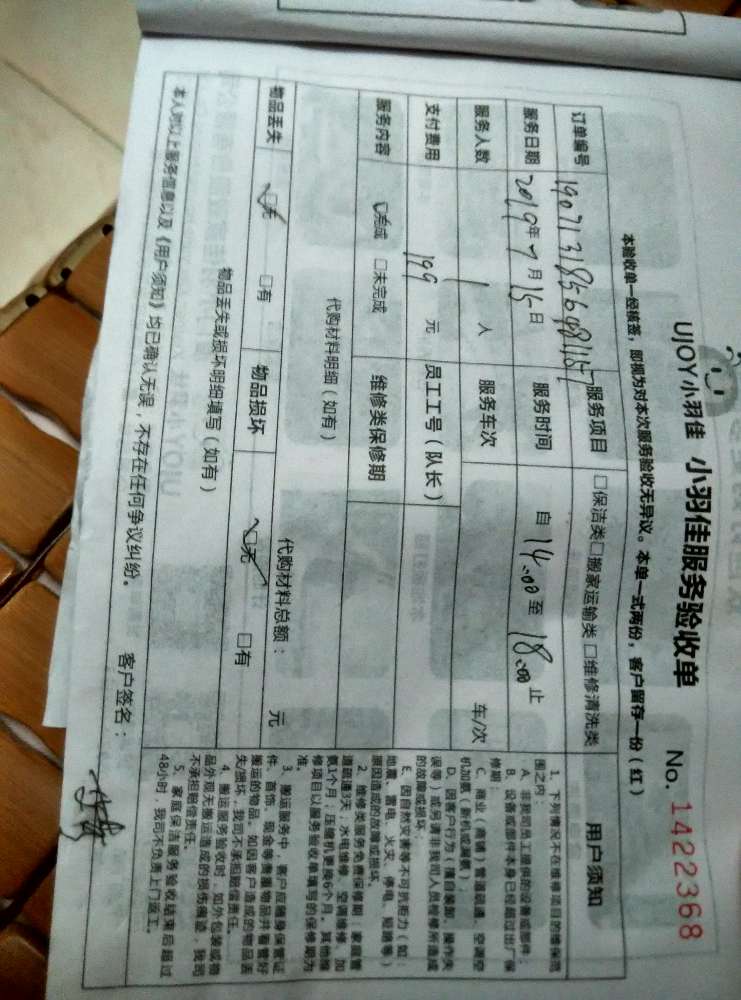 UJOY小羽佳 小羽佳服务验收单 No. 1422368
本验收单一经核签，即视为对本次服务验收无异议。本单一式两份，客户留存一份（红）
订单编号 服务项目 □保洁类□搬家运输类 □维修清洗类
服务日期 2019年7月15日 服务时间 自14:00至18:00止
服务人数 1人 服务车次 车/次
支付费用 199 元 员工工号（队长）
服务内容 ☑完成 □未完成 维修类保修期
代购材料明细（如有） 代购材料总额： 元
物品丢失 ☑无 □有 物品损坏 ☑无 □有
物品丢失或损坏明细填写（如有）
本人对以上服务信息以及《用户须知》均已确认无误，不存在任何争议纠纷。 客户签名：
用户须知
1、下列情况不在维修项目的维保范
围之内：
A、非我司员工提供的设备或部件；
B、设备或部件本身已经超过出厂保
修期；
C、商业（商铺）管道疏通、空调空
机加氨（新机或漏氨）；
D、因客户行为（擅自装卸、操作失
误等）或另请非我司人员检修所造成
的故障或损坏；
E、因自然灾害等不可抗拒力（如：
地震、雷电、火灾、停电、短路等）
原因造成的故障或损坏。
2、维修类服务免费保修期：家庭管
道疏通3天；水电维修、空调维修、加
氨1个月；压缩机更换6个月。其他维
修项目以服务验收单填写的保修期为
准。
3、搬运服务中，客户应随身保管证
件、首饰、现金等贵重物品并看管好
搬运的物品，如因客户造成的物品丢
失/损坏，我司不承担赔偿责任。
4、搬运服务验收时，如外包装或物
品外观无搬运造成的损伤痕迹，我司
不承担赔偿责任。
5、家庭保洁服务验收结束后超过
48小时，我司不负责上门返工。